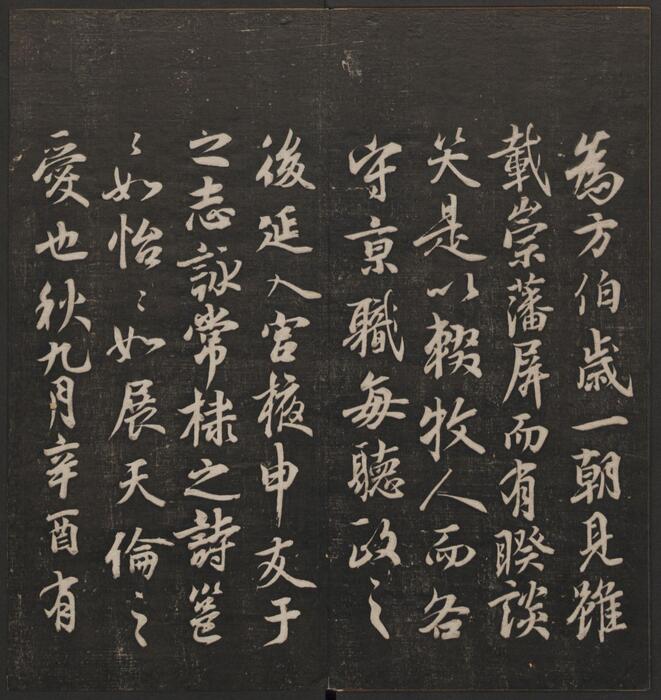 為方伯歲一朝見雖
載崇藩屏而有睽談
笑是以輟牧人而各
守京職每聽政之
後延入宮掖申友于
之志詠常棣之詩邕
〻如怡〻如展天倫之
愛也秋九月辛酉有